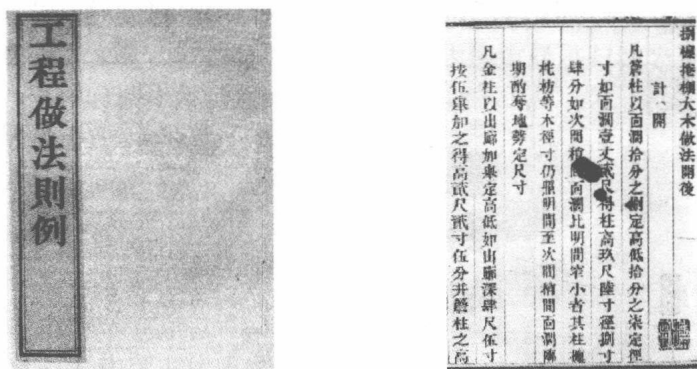 工程做法則例
捌檁捲棚大木做法開後
計一開
凡簷柱以面濶拾分之捌定高低拾分之柒定徑
寸如面濶壹丈貳尺得柱高玖尺陸寸徑捌寸
肆分如次間稍面濶比明間窄小者其柱檁
柁枋等木徑寸仍照明間至次間稍間面濶臨
期酌奪地勢定尺寸
凡金柱以出廊加舉定高低如出廊深肆尺伍寸
按伍舉加之得高貳尺貳寸伍分并簷柱之高